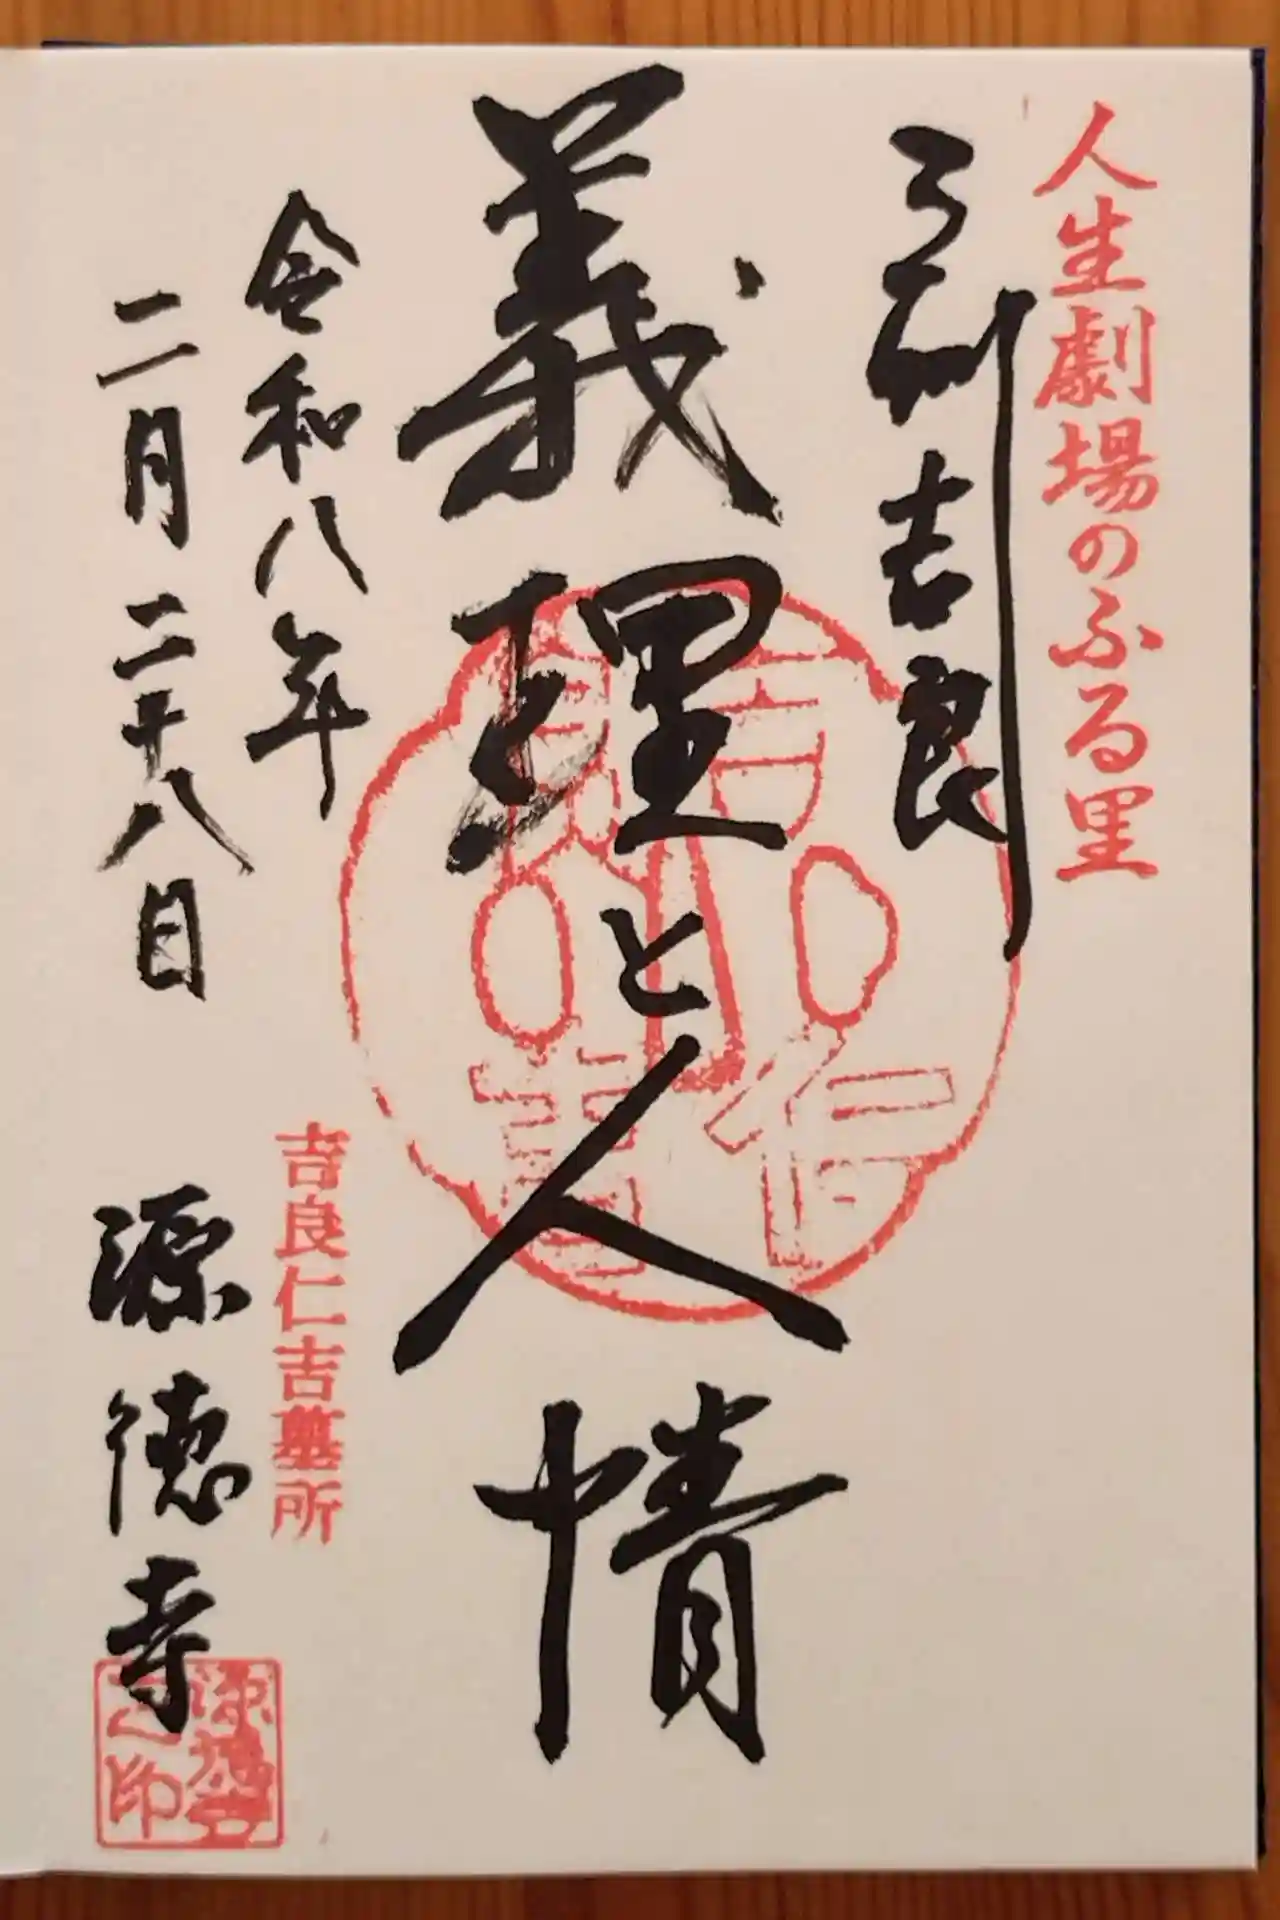 人生劇場のふる里
三州吉良
義理と人情
吉良
仁吉
令和八年
二月二十八日
吉良仁吉墓所
源徳寺
源徳寺
之印